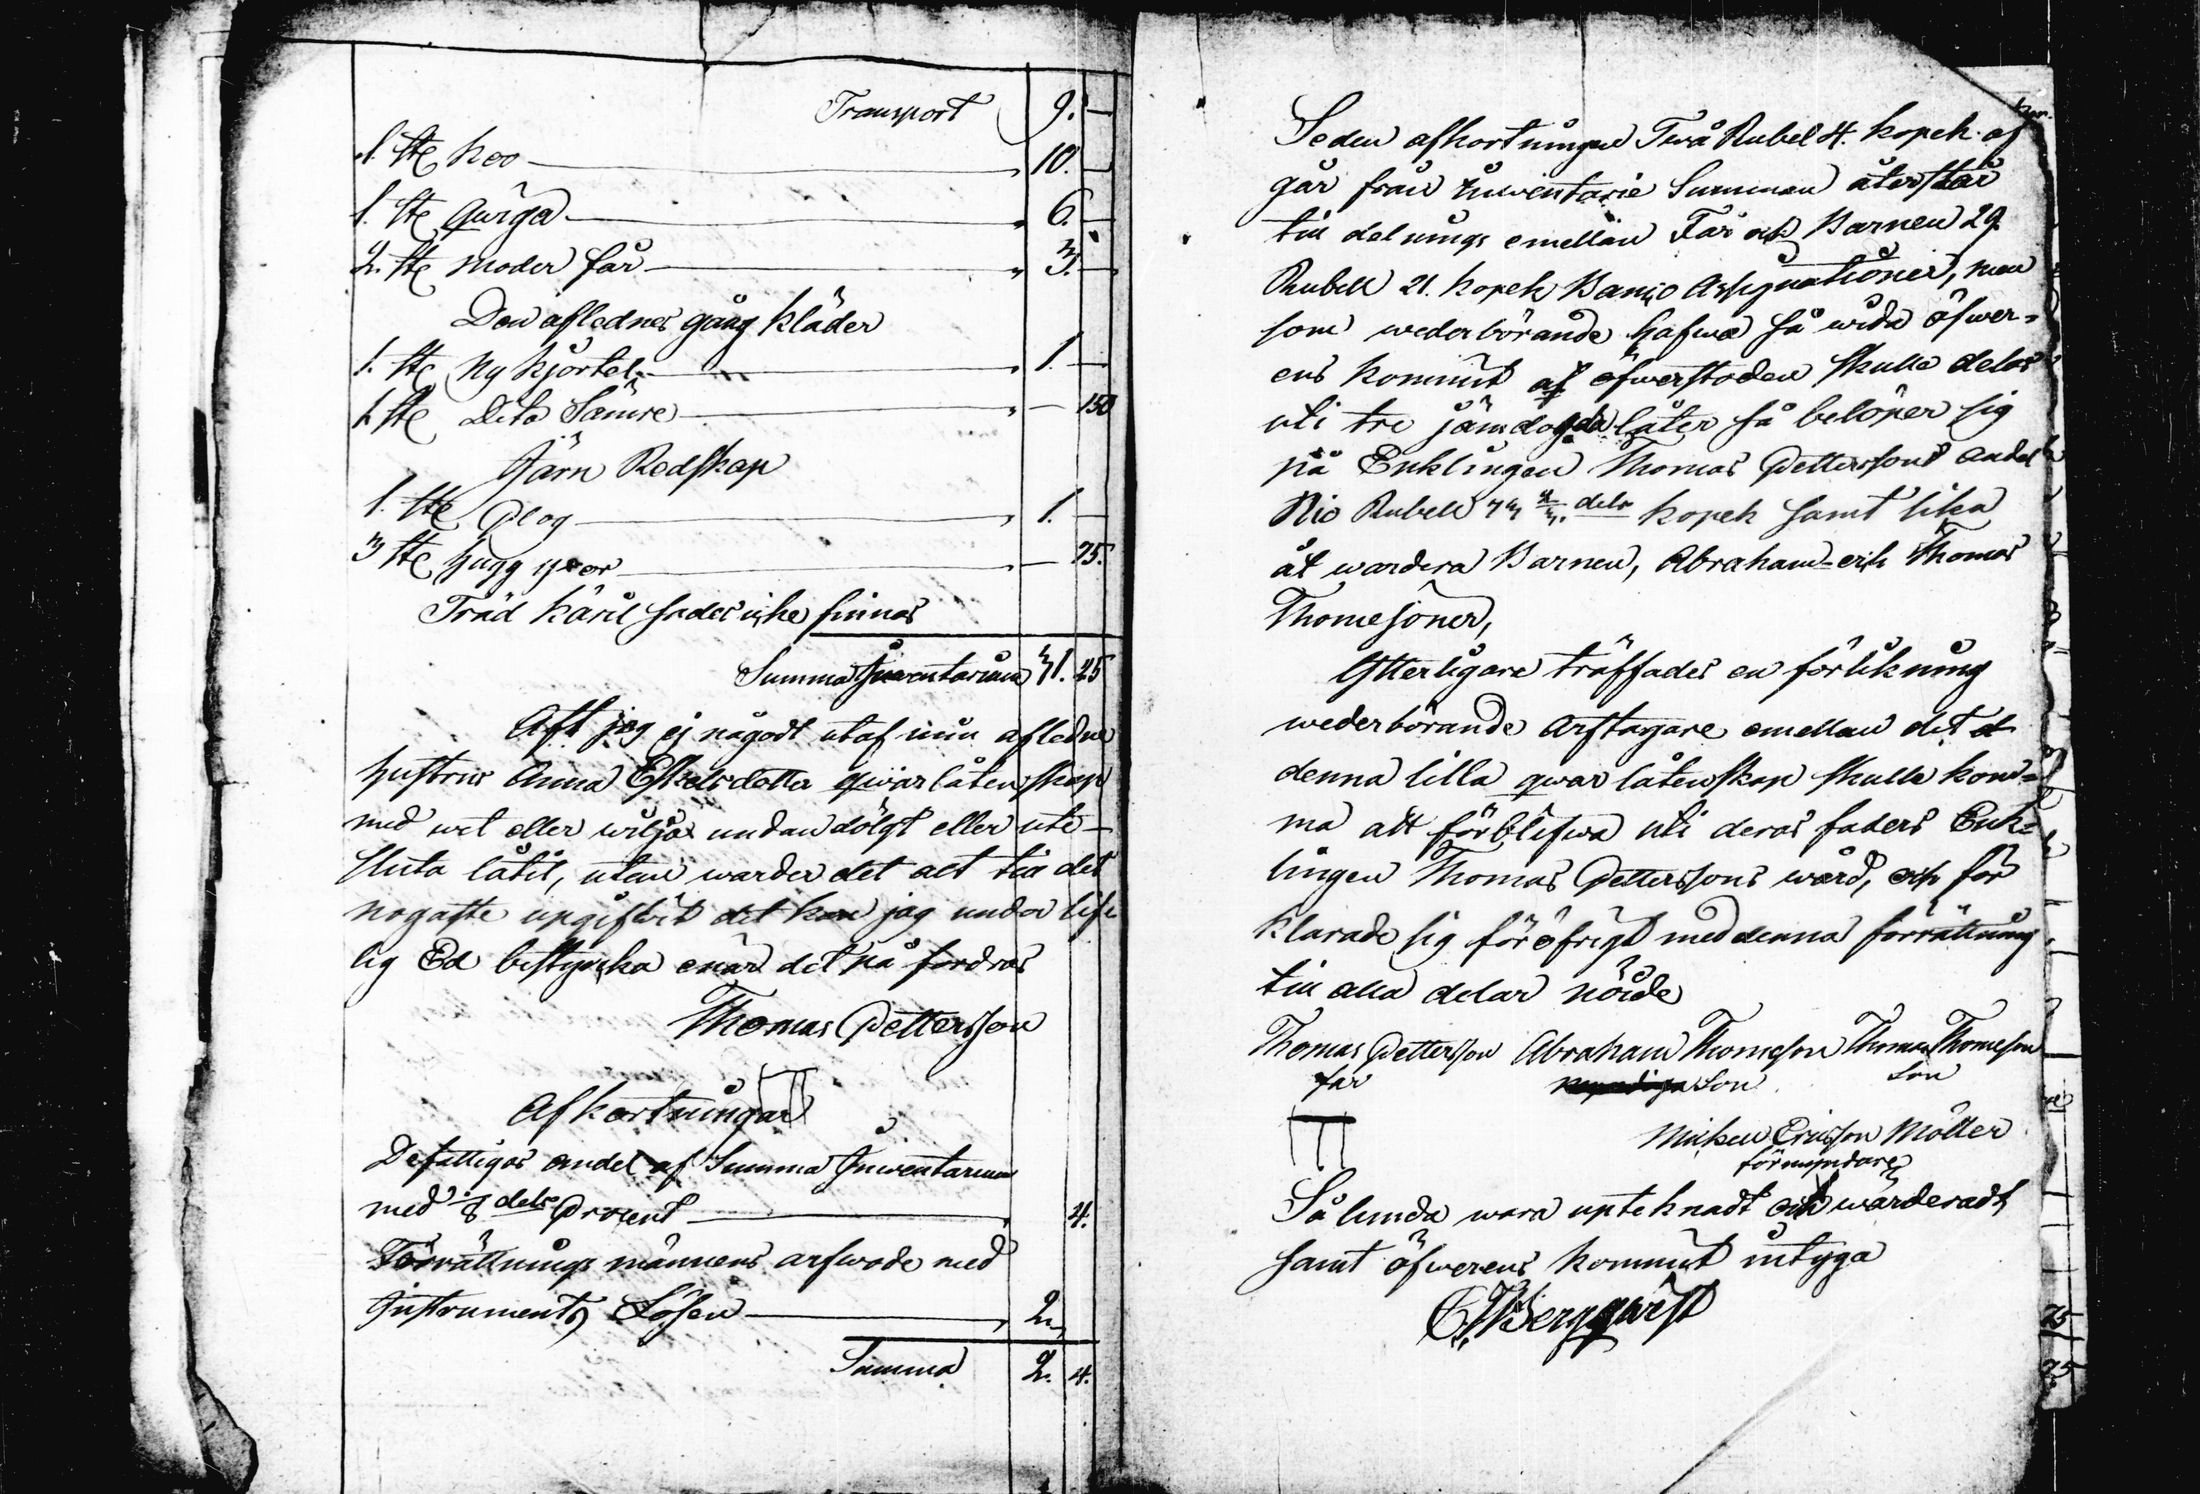 Transport 9. —
1. st. koo — 10. —
1. st. Qwiga — 6. —
2. st. moder får — 3. —
Den aflednes gång kläder
1. st. Ny kjortel — 1. —
1. st. Dito Sämre — 50
Järn Redskap
1. st. Plog — 1. —
3 st. hugg yxor — 75.
Träd käril sades icke finnas
Summa Inventarium 31. 25
Att jag ej någodt utaf min afledne
hustrus Anna Eskelsdotter qwarlåtenskap
med wet eller wilja undandölgt eller ute-
sluta låtit, utan warder det alt till det
nogaste upgifwit det kan jag under lif-
lig Ed bestyrka enär det på fordras
Thomas Pettersson
Afkortningar
Defattigas andel af Summa Inwentarium
med 1/8 dels Procent — 4.
Förrättnings männens arfwode med
Instrumentz Lösen — 2.
Summa 2. 4.
Sedan afkortningen Twå Rubel 4. kopek af
går från Inwentarie Summan återstår
till delnings emellan Far och Barnen 29
Rubell 21. kopek Banco Assignationer, men
som wederbörande hafwa så wida öfwer-
ens kommit at öfwerstoden skulle delas
uti tre jämdogda låter så belöper sig
på Enklingen Thomas Petterssons andel
Nio Rubell 73 2/3. dels kopek samt lika
åt wardera Barnen, Abraham och Thomas
Thomesöner,
Ytterligare träffades en förlikning
wederbörande Arftagare emellan det at
denna lilla qwarlåtenskap skulle kom-
ma att förblifwa uti deras faders Enk-
lingen Thomas Petterssons wård, och för
klarade sig föröfrigt med denna förrättning
till alla delar nöide
Thomas Pettersson Abraham Thomeson Thomas Thomeson
far Son Son
Michell Ericsson Möller
förmyndare
Sålunda wara upteknadt och wärderadt
samt öfwerens kommit intyga
Bergqwist
75
75